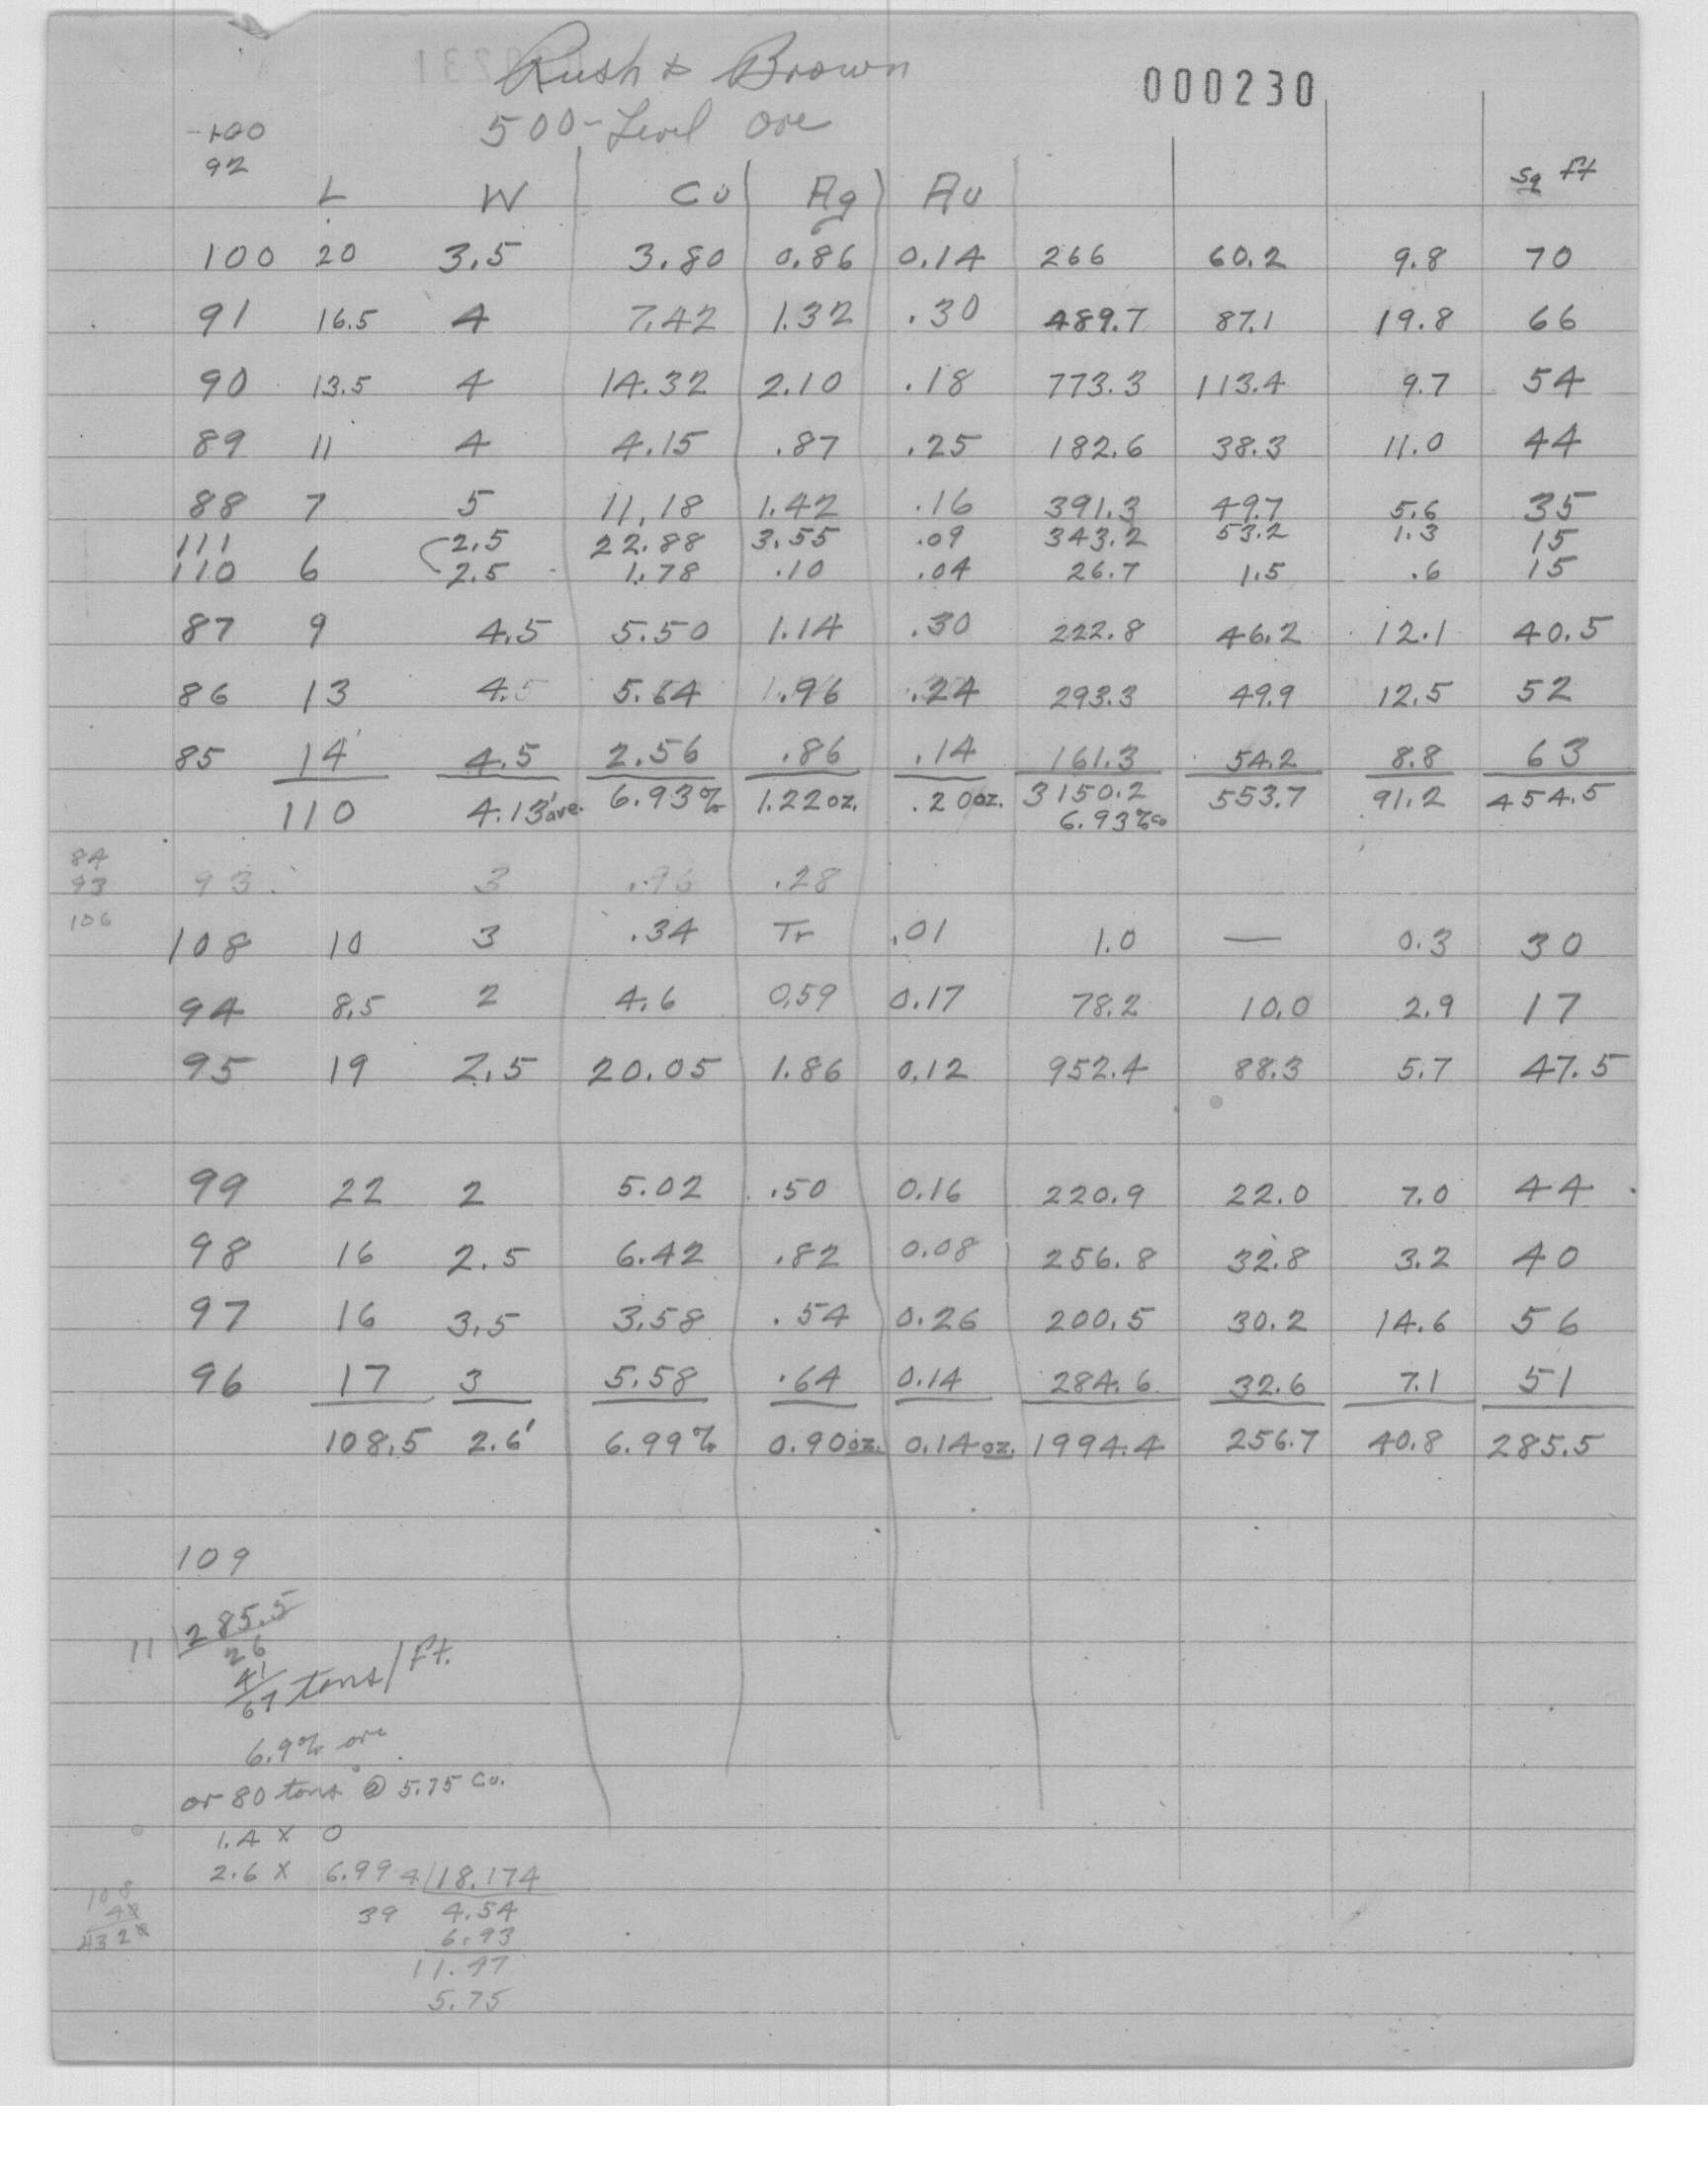 Rush & Brown
000230
500-Level Ore
100
92
L W Cu Ag Au Sq ft
100 20 3.5 3.80 0.86 0.14 266 60.2 9.8 70
91 16.5 4 7.42 1.32 .30 489.7 87.1 19.8 66
90 13.5 4 14.32 2.10 .18 773.3 113.4 9.7 54
89 11 4 4.15 .87 .25 182.6 38.3 11.0 44
88 7 5 11.18 1.42 .16 391.3 49.7 5.6 35
111 2.5 22.88 3.55 .09 343.2 53.2 1.3 15
110 6 2.5 1.78 .10 .04 26.7 1.5 .6 15
87 9 4.5 5.50 1.14 .30 222.8 46.2 12.1 40.5
86 13 4.5 5.64 1.96 .24 293.3 49.9 12.5 52
85 14' 4.5 2.56 .86 .14 161.3 54.2 8.8 63
110 4.13' ave. 6.93% 1.22 oz. .20 oz. 3150.2 553.7 91.2 454.5
6.93%
84
93 93 3 .96 .28
106
108 10 3 .34 Tr .01 1.0 — 0.3 30
94 8.5 2 4.6 0.59 0.17 78.2 10.0 2.9 17
95 19 2.5 20.05 1.86 0.12 952.4 88.3 5.7 47.5
99 22 2 5.02 .50 0.16 220.9 22.0 7.0 44
98 16 2.5 6.42 .82 0.08 256.8 32.8 3.2 40
97 16 3.5 3.58 .54 0.26 200.5 30.2 14.6 56
96 17 3 5.58 .64 0.14 284.6 32.6 7.1 51
108.5 2.6' 6.99% 0.90 oz. 0.14 oz. 1994.4 256.7 40.8 285.5
109
11 285.5
26
41
67 tons/ft.
6.9% ore
or 80 tons @ 5.75 Cu.
1.4 x 0
2.6 x 6.99 4 18.174
39 4.54
6.93
11.47
5.75
108